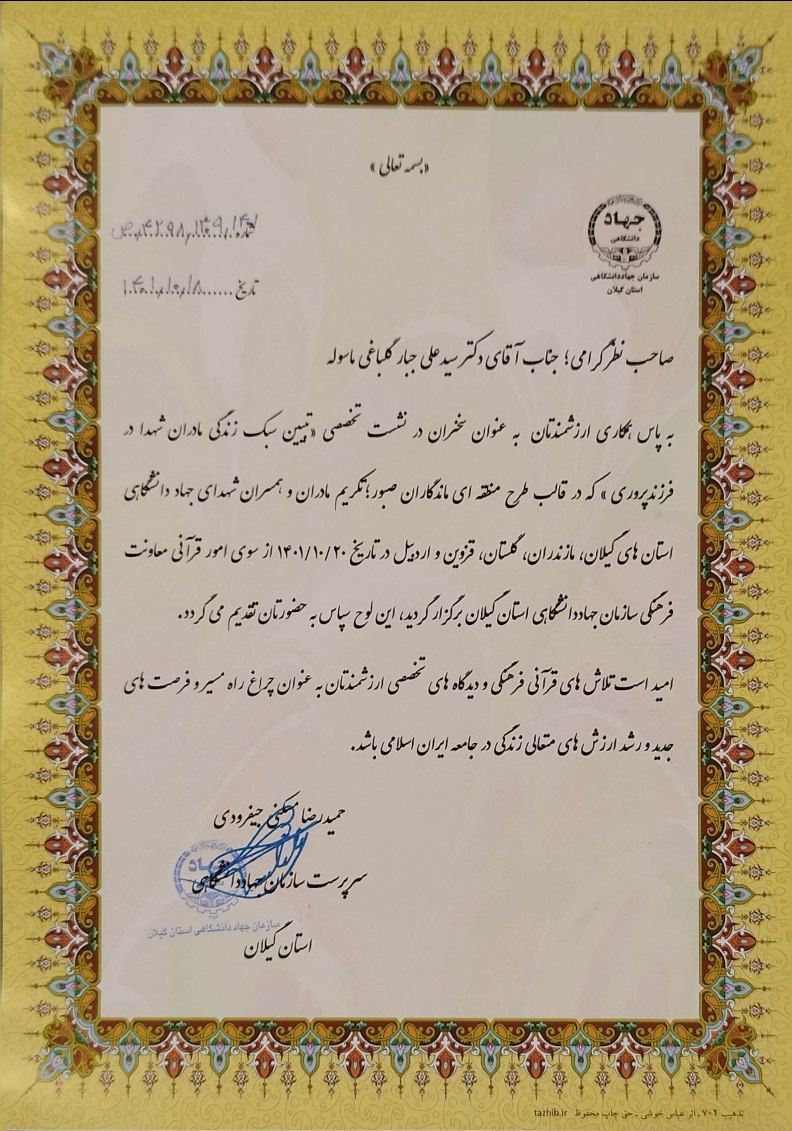 «بسمه تعالی»
جهاد
دانشگاهی
سازمان جهاددانشگاهی
استان گیلان
شماره
تاریخ ۱۴۰۱,۱۰,۱۸
صاحب نظر گرامی؛ جناب آقای دکتر سید علی جبار گلباغی ماسوله
به پاس همکاری ارزشمندتان به عنوان سخنران در نشست تخصصی «تبیین سبک زندگی مادران شهدا در
فرزندپروری» که در قالب طرح منطقه ای ماندگاران صبور؛ تکریم مادران و همسران شهدای جهاد دانشگاهی
استان های گیلان، مازندران، گلستان، قزوین و اردبیل در تاریخ ۱۴۰۱/۱۰/۲۰ از سوی امور قرآنی معاونت
فرهنگی سازمان جهاددانشگاهی استان گیلان برگزار گردید، این لوح سپاس به حضورتان تقدیم می گردد.
امید است تلاش های قرآنی فرهنگی و دیدگاه های تخصصی ارزشمندتان به عنوان چراغ راه مسیر و فرصت های
جدید و رشد ارزش های متعالی زندگی در جامعه ایران اسلامی باشد.
حمیدرضا جیفرودی
سرپرست سازمان جهاددانشگاهی
استان گیلان
جهاد
سازمان جهاد دانشگاهی استان گیلان
تذهیب ۷۰۲ - اثر عباس خوشی - حق چاپ محفوظ tazhib.ir